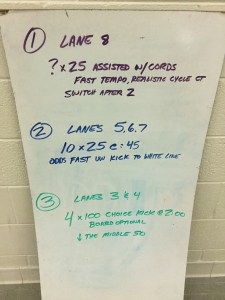 1 LANE 8
? x 25 ASSISTED W/CORDS
FAST TEMPO, REALISTIC CYCLE CT
SWITCH AFTER 2
2 LANES 5,6,7
10 x 25 @ :45
ODDS FAST UW KICK TO WHITE LINE
3 LANES 3 & 4
4 x 100 CHOICE KICK @ 2:00
BOARD OPTIONAL
↓ THE MIDDLE 50